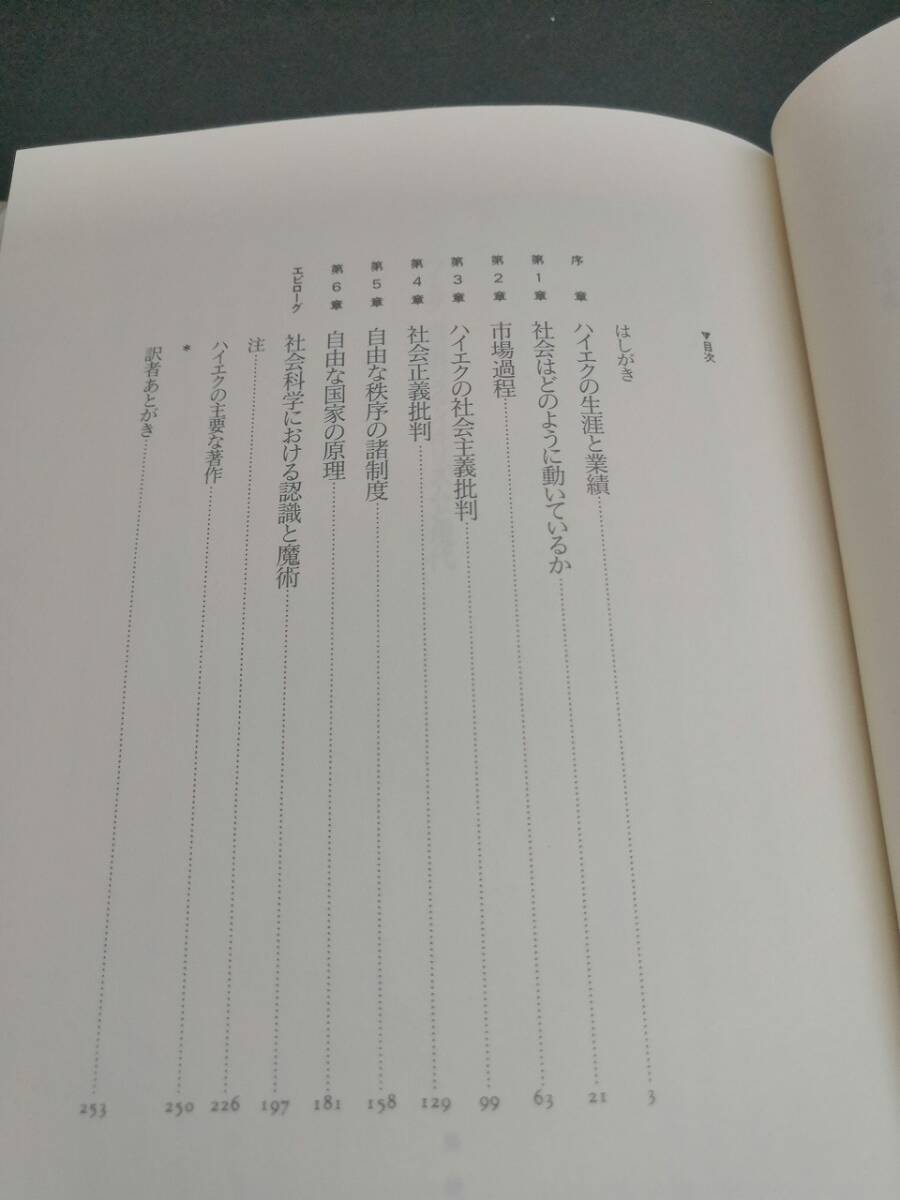 ▼目次
はしがき
序章 ハイエクの生涯と業績……3
第1章 社会はどのように動いているか……21
第2章 市場過程……63
第3章 ハイエクの社会主義批判……99
第4章 社会正義批判……129
第5章 自由な秩序の諸制度……158
第6章 自由な国家の原理……181
エピローグ 社会科学における認識と魔術……197
注……226
ハイエクの主要な著作……250
*
訳者あとがき……253